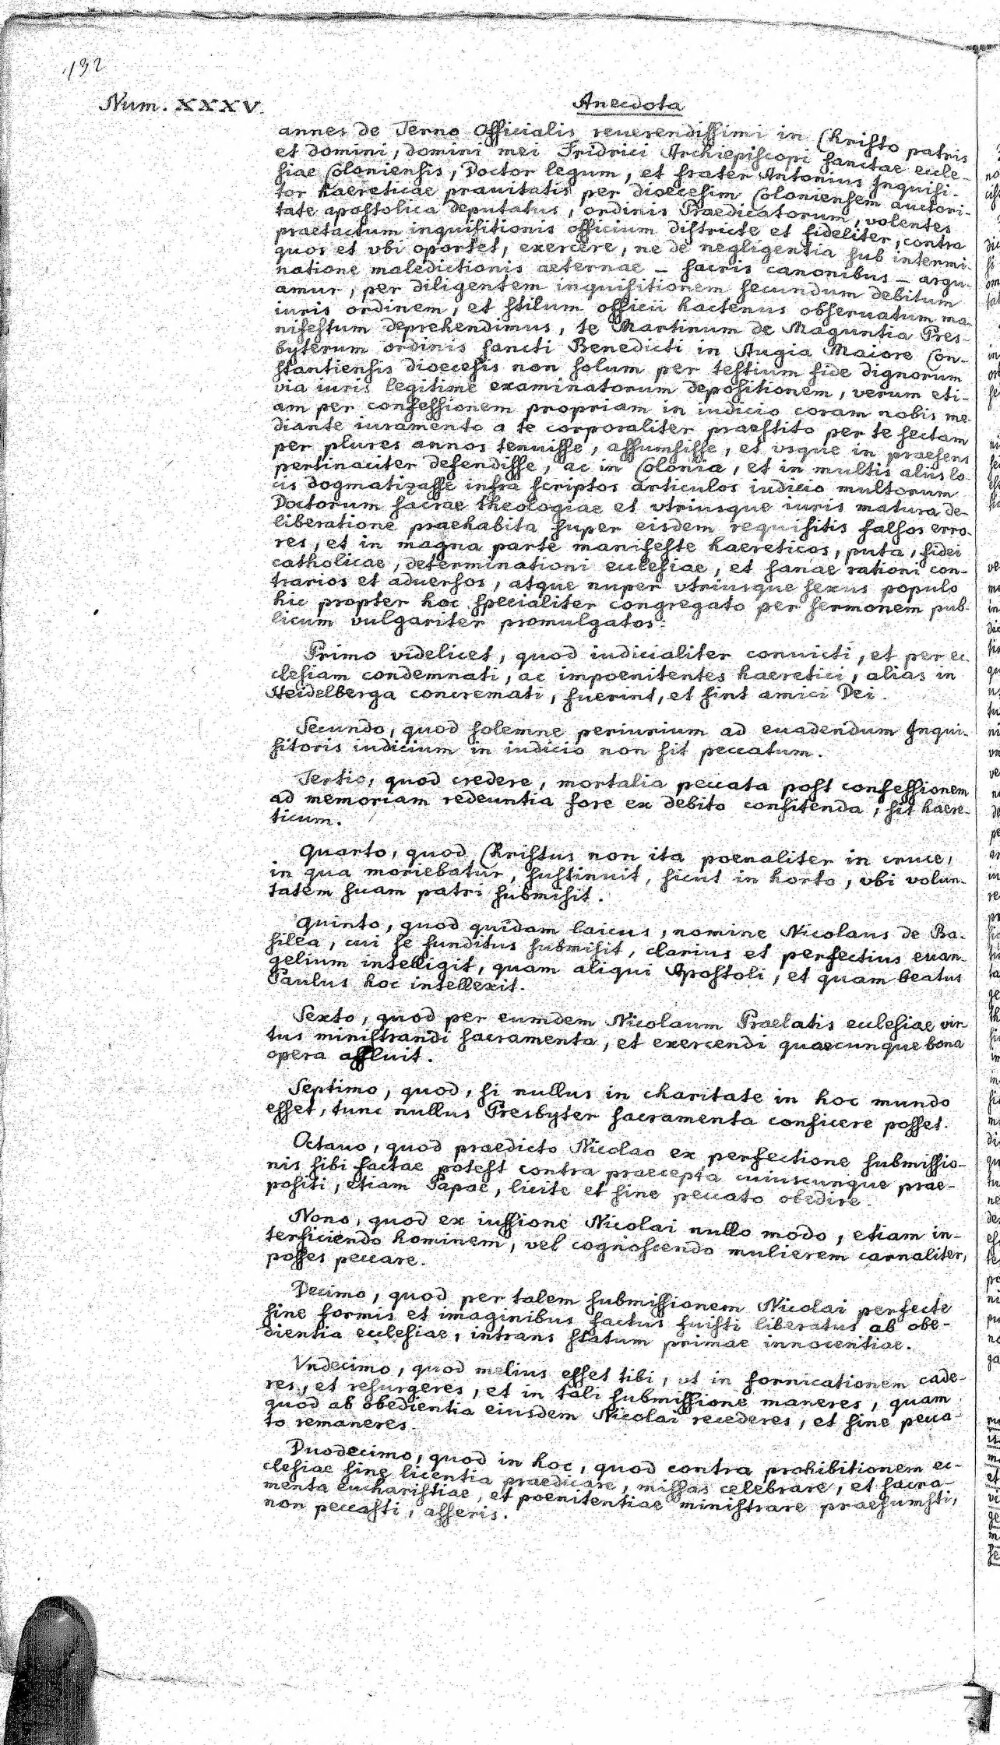 132
Num. XXXV.
Anecdota
annes de Terno Officialis reuerendissimi in Christo patris
et domini, domini mei Fridrici Archiepiscopi sanctae eccle-
siae Coloniensis, Doctor legum, et frater Antonius Inquisi-
tor haereticae prauitatis per dioecesim Coloniensem auctori-
tate apostolica deputatus, ordinis Praedicatorum, volentes
praetactum inquisitionis officium districte et fideliter, contra
quos et vbi oportet, exercere, ne de negligentia sub intermi-
natione maledictionis aeternae - sacris canonibus - argu-
amur, per diligentem inquisitionem secundum debitum
iuris ordinem, et stilum officii hactenus obseruatum ma-
nifestum deprehendimus, te Martinum de Maguntia Pres-
byterum ordinis sancti Benedicti in Augia Maiore Con-
stantiensis dioecesis non solum per testium fide dignorum
via iuris legitime examinatorum depositionem, verum eti-
am per confessionem propriam in iudicio coram nobis me
diante iuramento a te corporaliter praestito per te sectam
per plures annos tenuisse, assumsisse, et vsque in praesens
pertinaciter defendisse, ac in Colonia, et in multis aliis lo-
cis dogmatizasse infra scriptos articulos iudicio multorum
Doctorum sacrae theologiae et vtriusque iuris matura de-
liberatione praehabita super eisdem requisitis falsos erro-
res, et in magna parte manifeste haereticos, puta, fidei
catholicae, determinationi ecclesiae, et sanae rationi con-
trarios et aduersos, atque nuper vtriusque sexus populo
hic propter hoc specialiter congregato per sermonem pub-
licum vulgariter promulgatos:
Primo videlicet, quod iudicialiter convicti, et per ec-
clesiam condemnati, ac impoenitentes haeretici, alias in
Heidelberga concremati, fuerint, et sint amici Dei.
Secundo, quod solemne periurium ad euadendum Inqui-
sitoris iudicium in iudicio non sit peccatum.
Tertio, quod credere, mortalia peccata post confessionem
ad memoriam redeuntia fore ex debito confitenda, sit haere-
ticum.
Quarto, quod Christus non ita poenaliter in cruce,
in qua moriebatur, sustinuit, sicut in horto, vbi volun-
tatem suam patri submisit.
Quinto, quod quidam laicus, nomine Nicolaus de Ba-
silea, cui te funditus submisit, clarius et perfectius euan-
gelium intelligit, quam aliqui Apostoli, et quam beatus
Paulus hoc intellexit.
Sexto, quod per eumdem Nicolaum Praelatis ecclesiae vir-
tus ministrandi sacramenta, et exercendi quaecunque bona
opera affluit.
Septimo, quod, si nullus in charitate in hoc mundo
esset, tunc nullus Presbyter sacramenta conficere posset.
Octauo, quod praedicto Nicolao ex perfectione submissio-
nis sibi factae potest contra praecepta cuiuscunque prae-
positi, etiam Papae, licite et sine peccato obedire.
Nono, quod ex iussione Nicolai nullo modo, etiam in-
terficiendo hominem, vel cognoscendo mulierem carnaliter,
posses peccare.
Decimo, quod per talem submissionem Nicolai perfecte
sine formis et imaginibus factus fuisti liberatus ab obe-
dientia ecclesiae, intrans statum primae innocentiae.
Vndecimo, quod melius esset tibi, ut in fornicationem cade-
res, et resurgeres, et in tali submissione maneres, quam
quod ab obedientia eiusdem Nicolai recederes, et sine pecca-
to remaneres.
Duodecimo, quod in hoc, quod contra prohibitionem ec-
clesiae sine licentia praedicare, missas celebrare, et sacra-
menta eucharistiae, et poenitentiae ministrare praesumsti,
non peccasti, asseris.